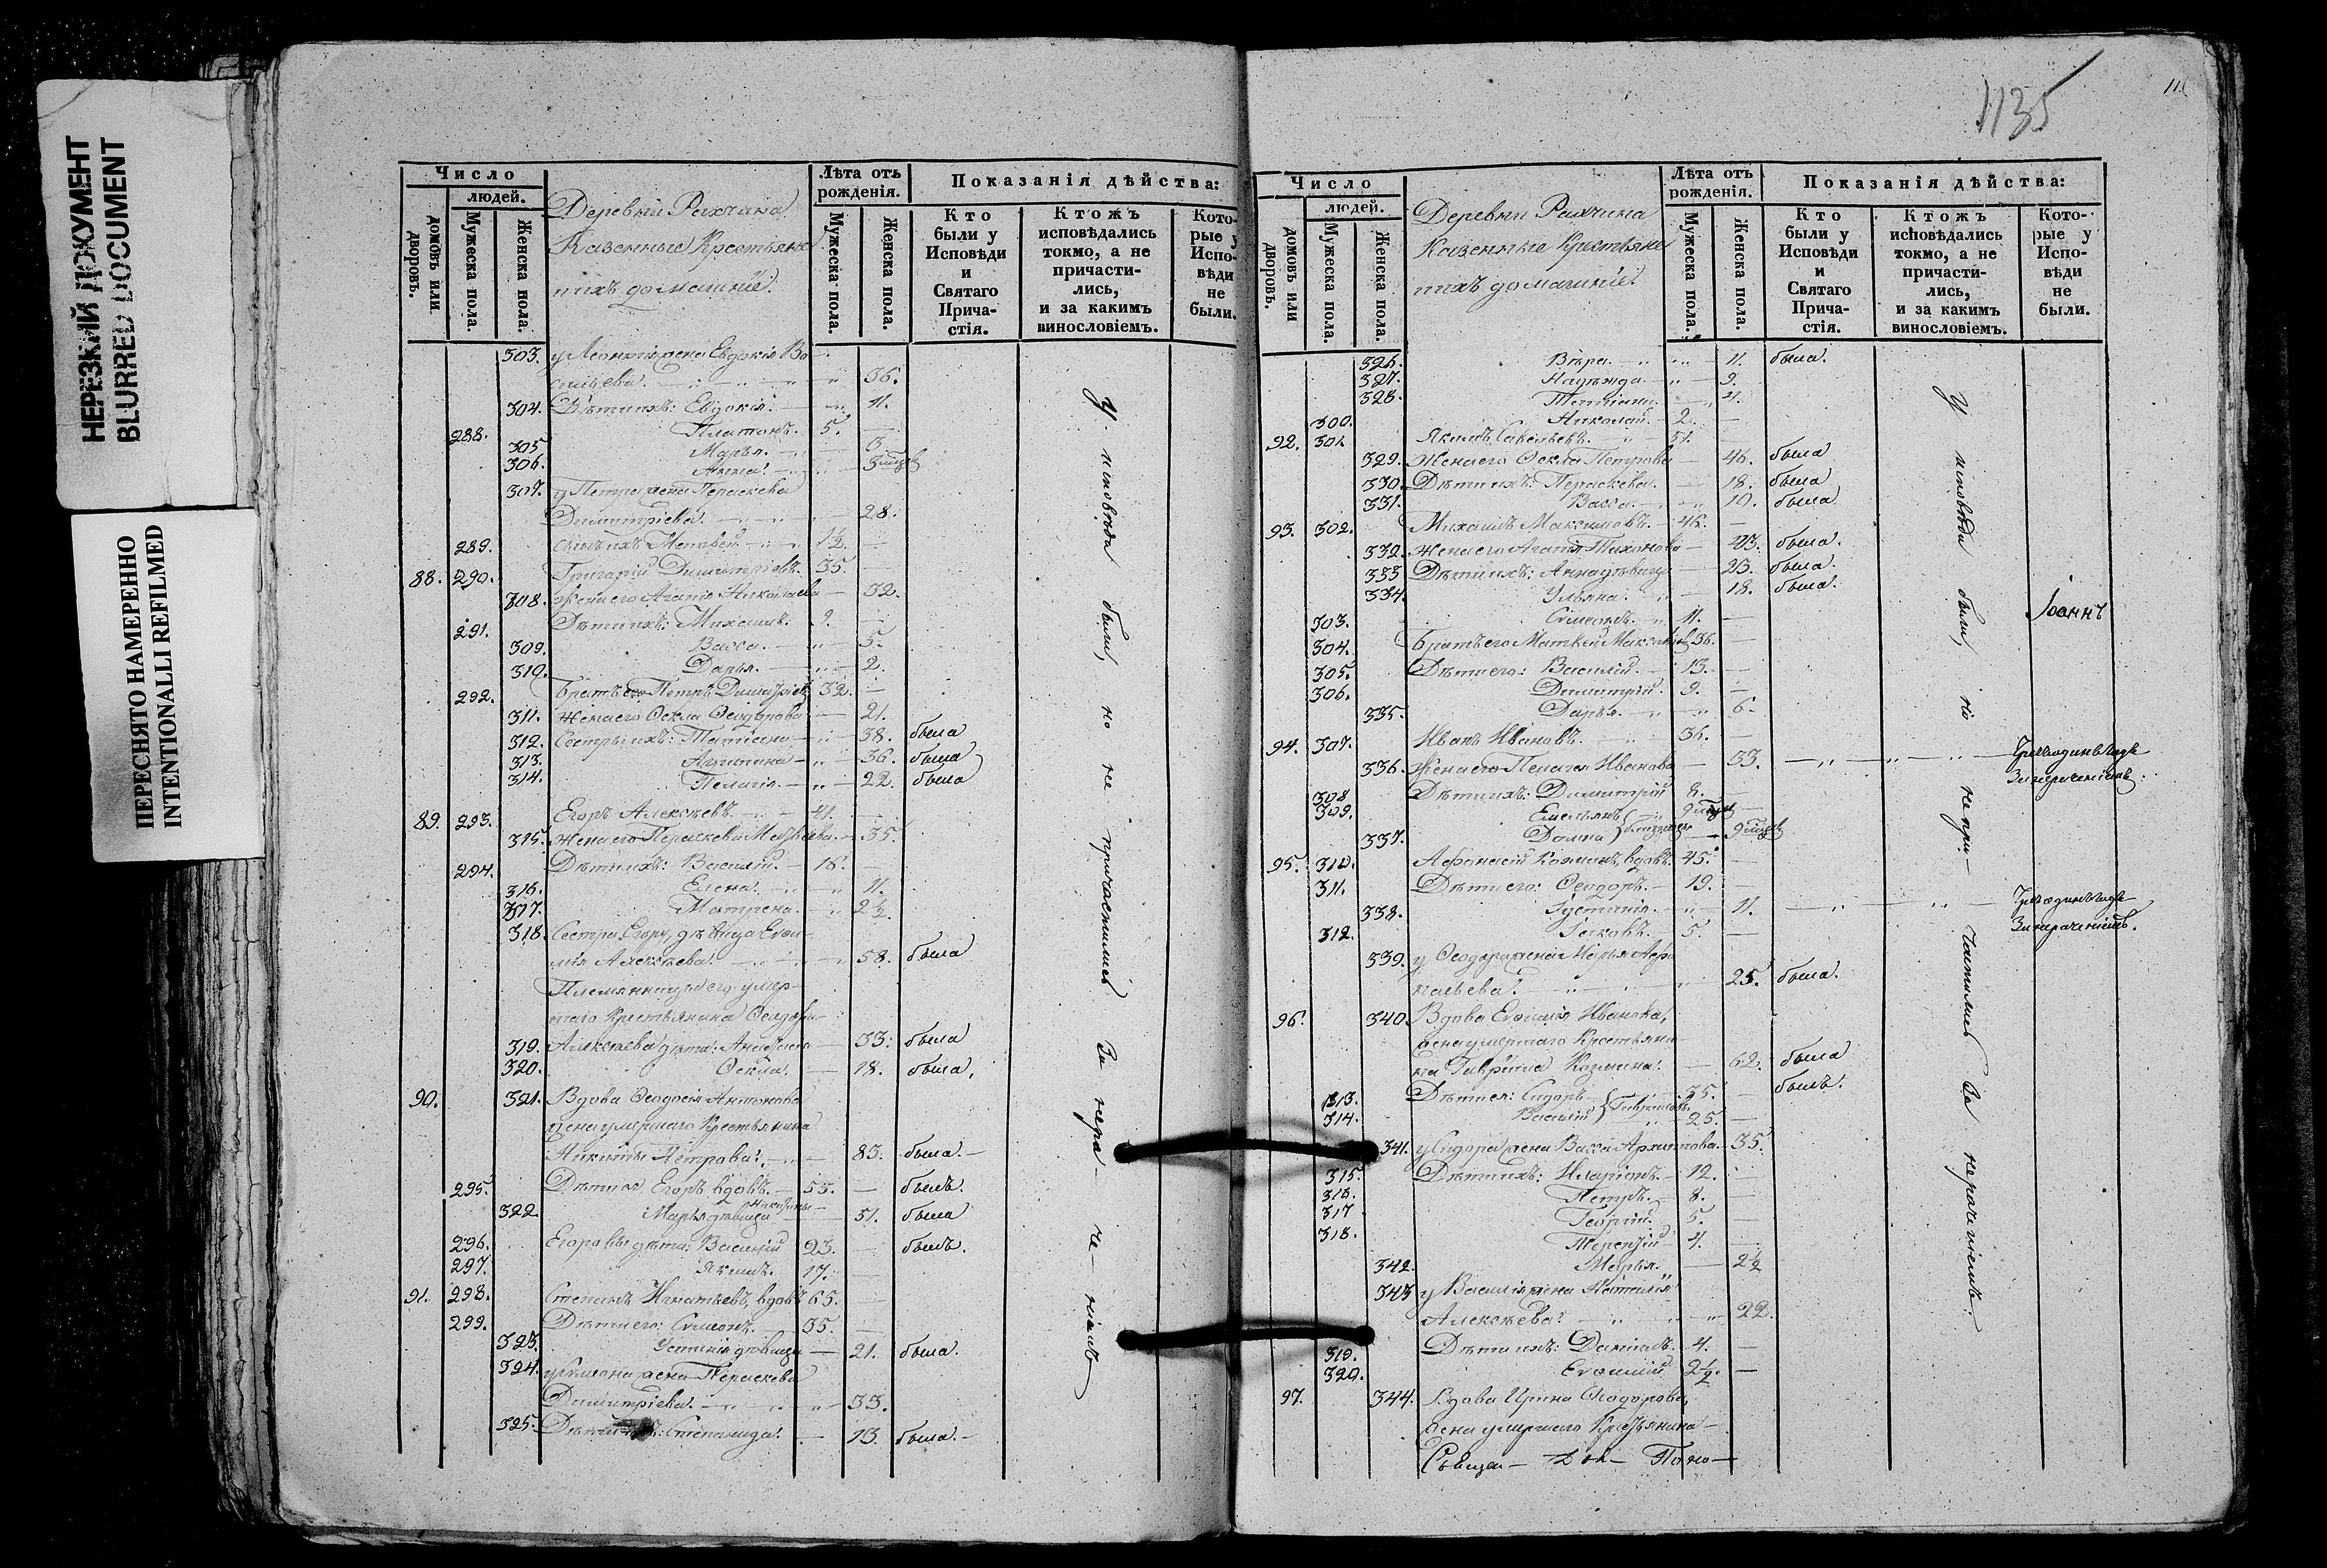 НЕРЕЗКИЙ ДОКУМЕНТ
BLURRED DOCUMENT
ПЕРЕСНЯТО НАМЕРЕННО
INTENTIONALLI REFILMED
Число
людей.
домовъ или дворовъ.
Мужеска пола.
Женска пола.
Деревни
Казенные Крестьяне
ихъ домашніе.
Лѣта отъ рожденія.
Мужеска пола.
Женска пола.
Показанія дѣйства:
Кто были у Исповѣди и Святаго Прича-стія.
Ктожъ исповѣдались токмо, а не причасти-лись, и за какимъ винословіемъ.
Кото-рые у Испо-вѣди не были.
303. у Леонтія жена Евдокія Ва-
36.
304. Дѣти ихъ: Евдокія. 11.
288. Платонъ. 5.
305 Марья. 3
306. Анна.
307. у Петра жена Параскева
Димитріева. 28.
289. сынъ ихъ 1½.
88. 290. Григорій Димитріевъ. 35.
308. Жена его Агапія Николаева 32.
291. Дѣти ихъ: Михаилъ. 9.
309. Васса. 5.
310. Дарья. 2.
292. братъ его Петръ Димитріевъ 32.
311. Жена его Ѳекла Ѳеодорова 21.
312. Сестры ихъ: Татіана 38. была
313. 36. была
314. Пелагія. 22. была
89. 293. Егоръ Алексѣевъ. 41.
315. Жена его Параскева Матвѣева. 35.
294. Дѣти ихъ: Василій. 16.
316. Елена. 11.
317. Матрена. 2½.
318. Сестра Егору, дѣвица Евѳи-
мія Алексѣева. 58. была
Племянницы его умер-
шаго Крестьянина Ѳеодора
319. Алексѣева дѣти: Анастасія 33. была
320. Ѳекла. 18. была.
90. 321. Вдова Ѳеодосія Антонова
жена умершаго Крестьянина
Никиты Петрова. 83. была.
295. Дѣти ея Егоръ вдовъ. 55. былъ.
322 Марья дѣвица 51. была
296. Егоровы дѣти: Василій 23. былъ.
297. Якимъ. 17.
91. 298. Степанъ Игнатьевъ, вдовъ 65.
299. Дѣти его: Симеонъ. 35.
323. Устинія дѣвица 21. была.
324. у Симеона жена Параскева
Димитріева. 33.
325. Дѣти ихъ: Степанида. 13. была.
У исповѣди были, но не причастились За нера-че-ніемъ
1135
Число
людей.
домовъ или дворовъ.
Мужеска пола.
Женска пола.
Деревни
Казенные Крестьяне
ихъ домашніе.
Лѣта отъ рожденія.
Мужеска пола.
Женска пола.
Показанія дѣйства:
Кто были у Исповѣди и Святаго Прича-стія.
Ктожъ исповѣдались токмо, а не причасти-лись, и за какимъ винословіемъ.
Кото-рые у Испо-вѣди не были.
326. Вѣра. 11. была.
327. Надежда. 9.
328. Татіана. 4.
300. Николай. 2.
92. 301. Якимъ Савельевъ. 51.
329. Жена его Ѳекла Петрова 46. была
330. Дѣти ихъ: Параскева. 18. была
331. Васса. 10. была
93. 302. Михаилъ Максимовъ. 46.
332. Жена его Агапія Тихонова 43. была.
333 Дѣти ихъ: Анна дѣвица 23. была.
334. Ульяна. 18. была.
Іоаннъ
303. Симеонъ. 11.
304. братъ его Матвей Максимовъ 36.
305. Дѣти его: Василій. 13.
306. Димитрій. 9.
335. Дарья. 6.
94. 307. Иванъ Ивановъ. 36.
336. Жена его Пелагея Иванова 33.
308 Дѣти ихъ: Димитрій 8.
309. Емельянъ
337. Домна
95. 310. Афанасій Козминъ, вдовъ. 45.
311. Дѣти его: Ѳеодоръ. 19.
338. Іустинія. 11.
312. Іаковъ. 5.
339. у Ѳеодора жена Марья Афа-
насьева. 25. была.
96. 340. Вдова Евѳимія Иванова,
жена умершаго Крестьяни-
на Гавріила Козмина. 62. была
313. Дѣти ея: Сидоръ 35. былъ.
314. Василій 25.
341. у Сидора жена Васса Архипова. 35.
315. Дѣти ихъ: Иларіонъ. 12.
316. Петръ. 8.
317 Георгій. 5.
318. Терентій 4.
342. Марья. 2½
343 у Василія жена Наталія
Алексѣева. 22.
319. Дѣти ихъ: Даніилъ. 4.
320. Евѳимій 2½.
97. 344. Вдова Ирина Ѳеодорова,
жена умершаго Крестьянина
У исповѣди были, но не при-частились За нерачениемъ.